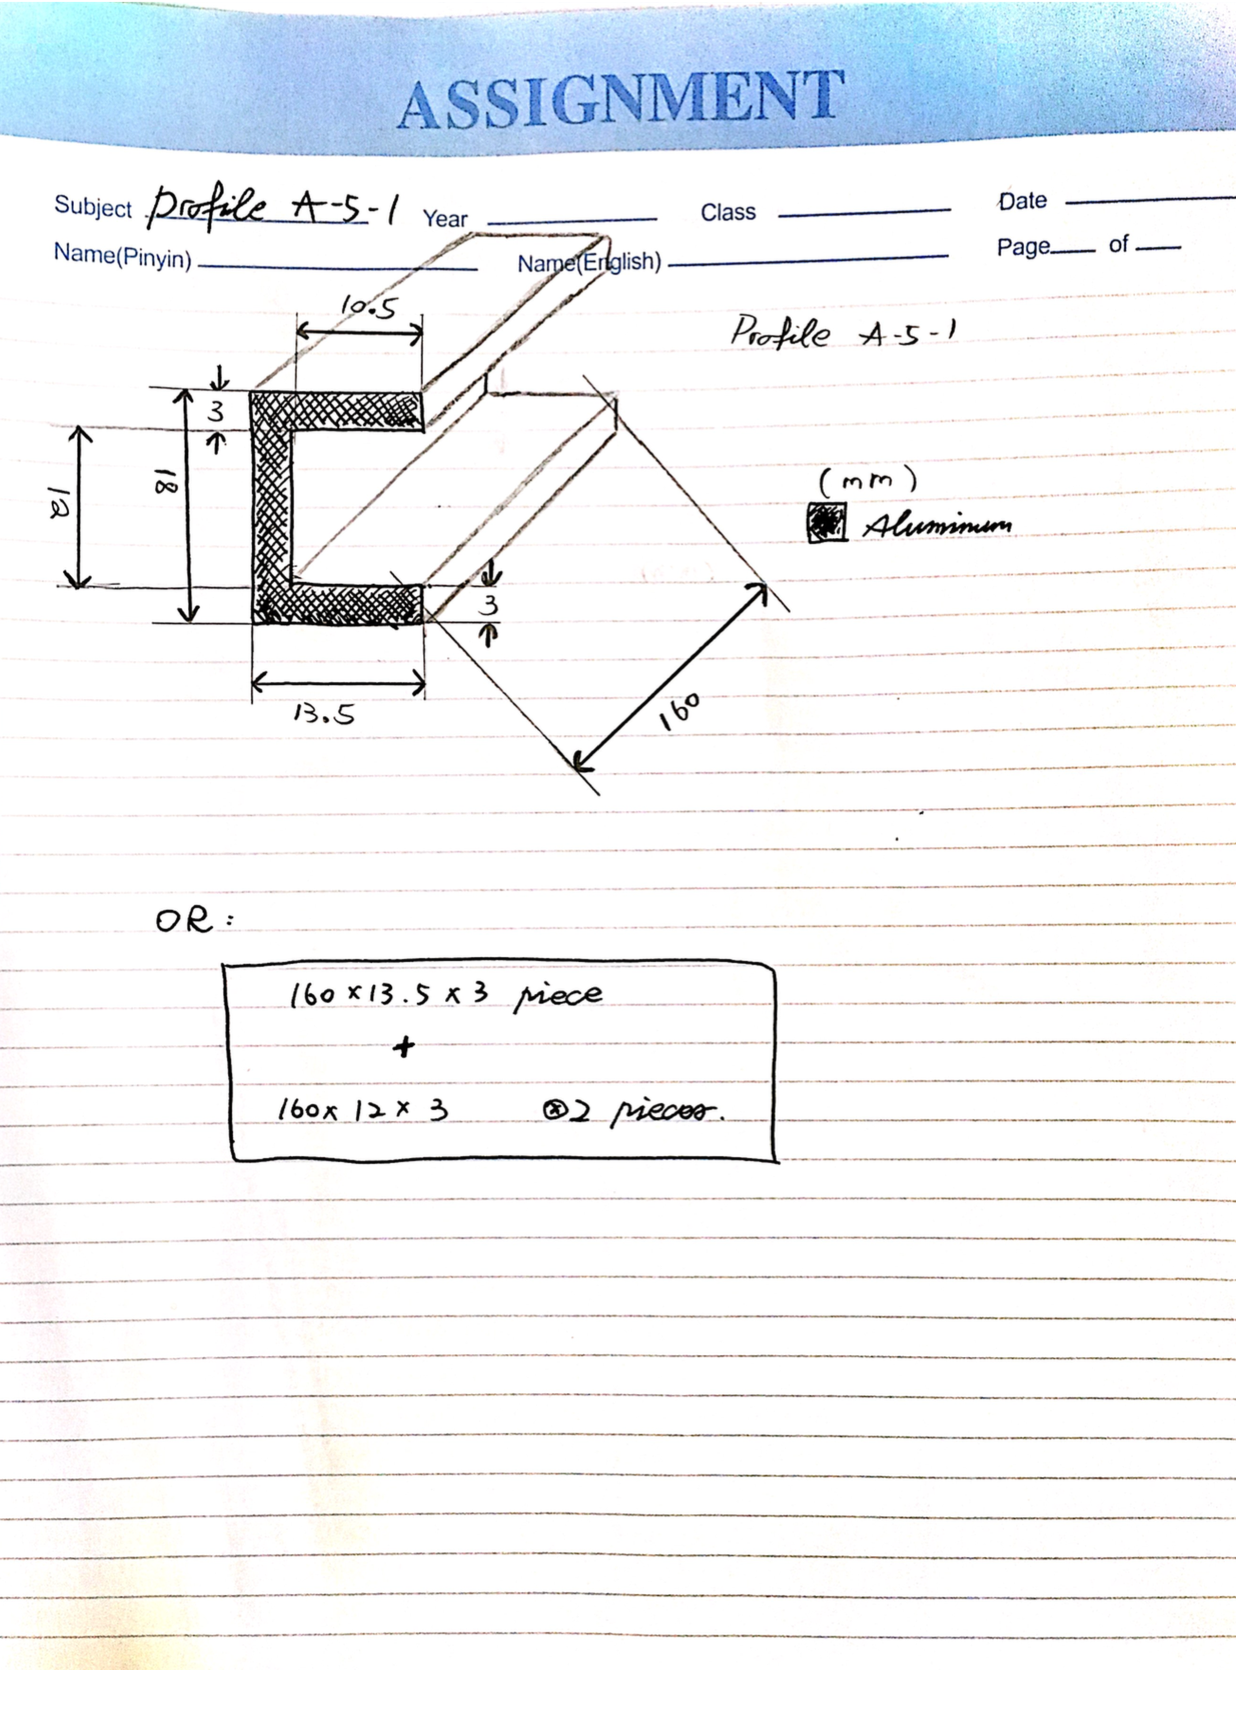 ASSIGNMENT
Subject Profile A-5-1 Year Class Date
Name(Pinyin) Name(English) Page of
10.5
Profile A-5-1
3
12
18
(mm)
Aluminum
3
13.5
160
OR:
160 x 13.5 x 3 piece
+
160 x 12 x 3 ⊗2 pieces.